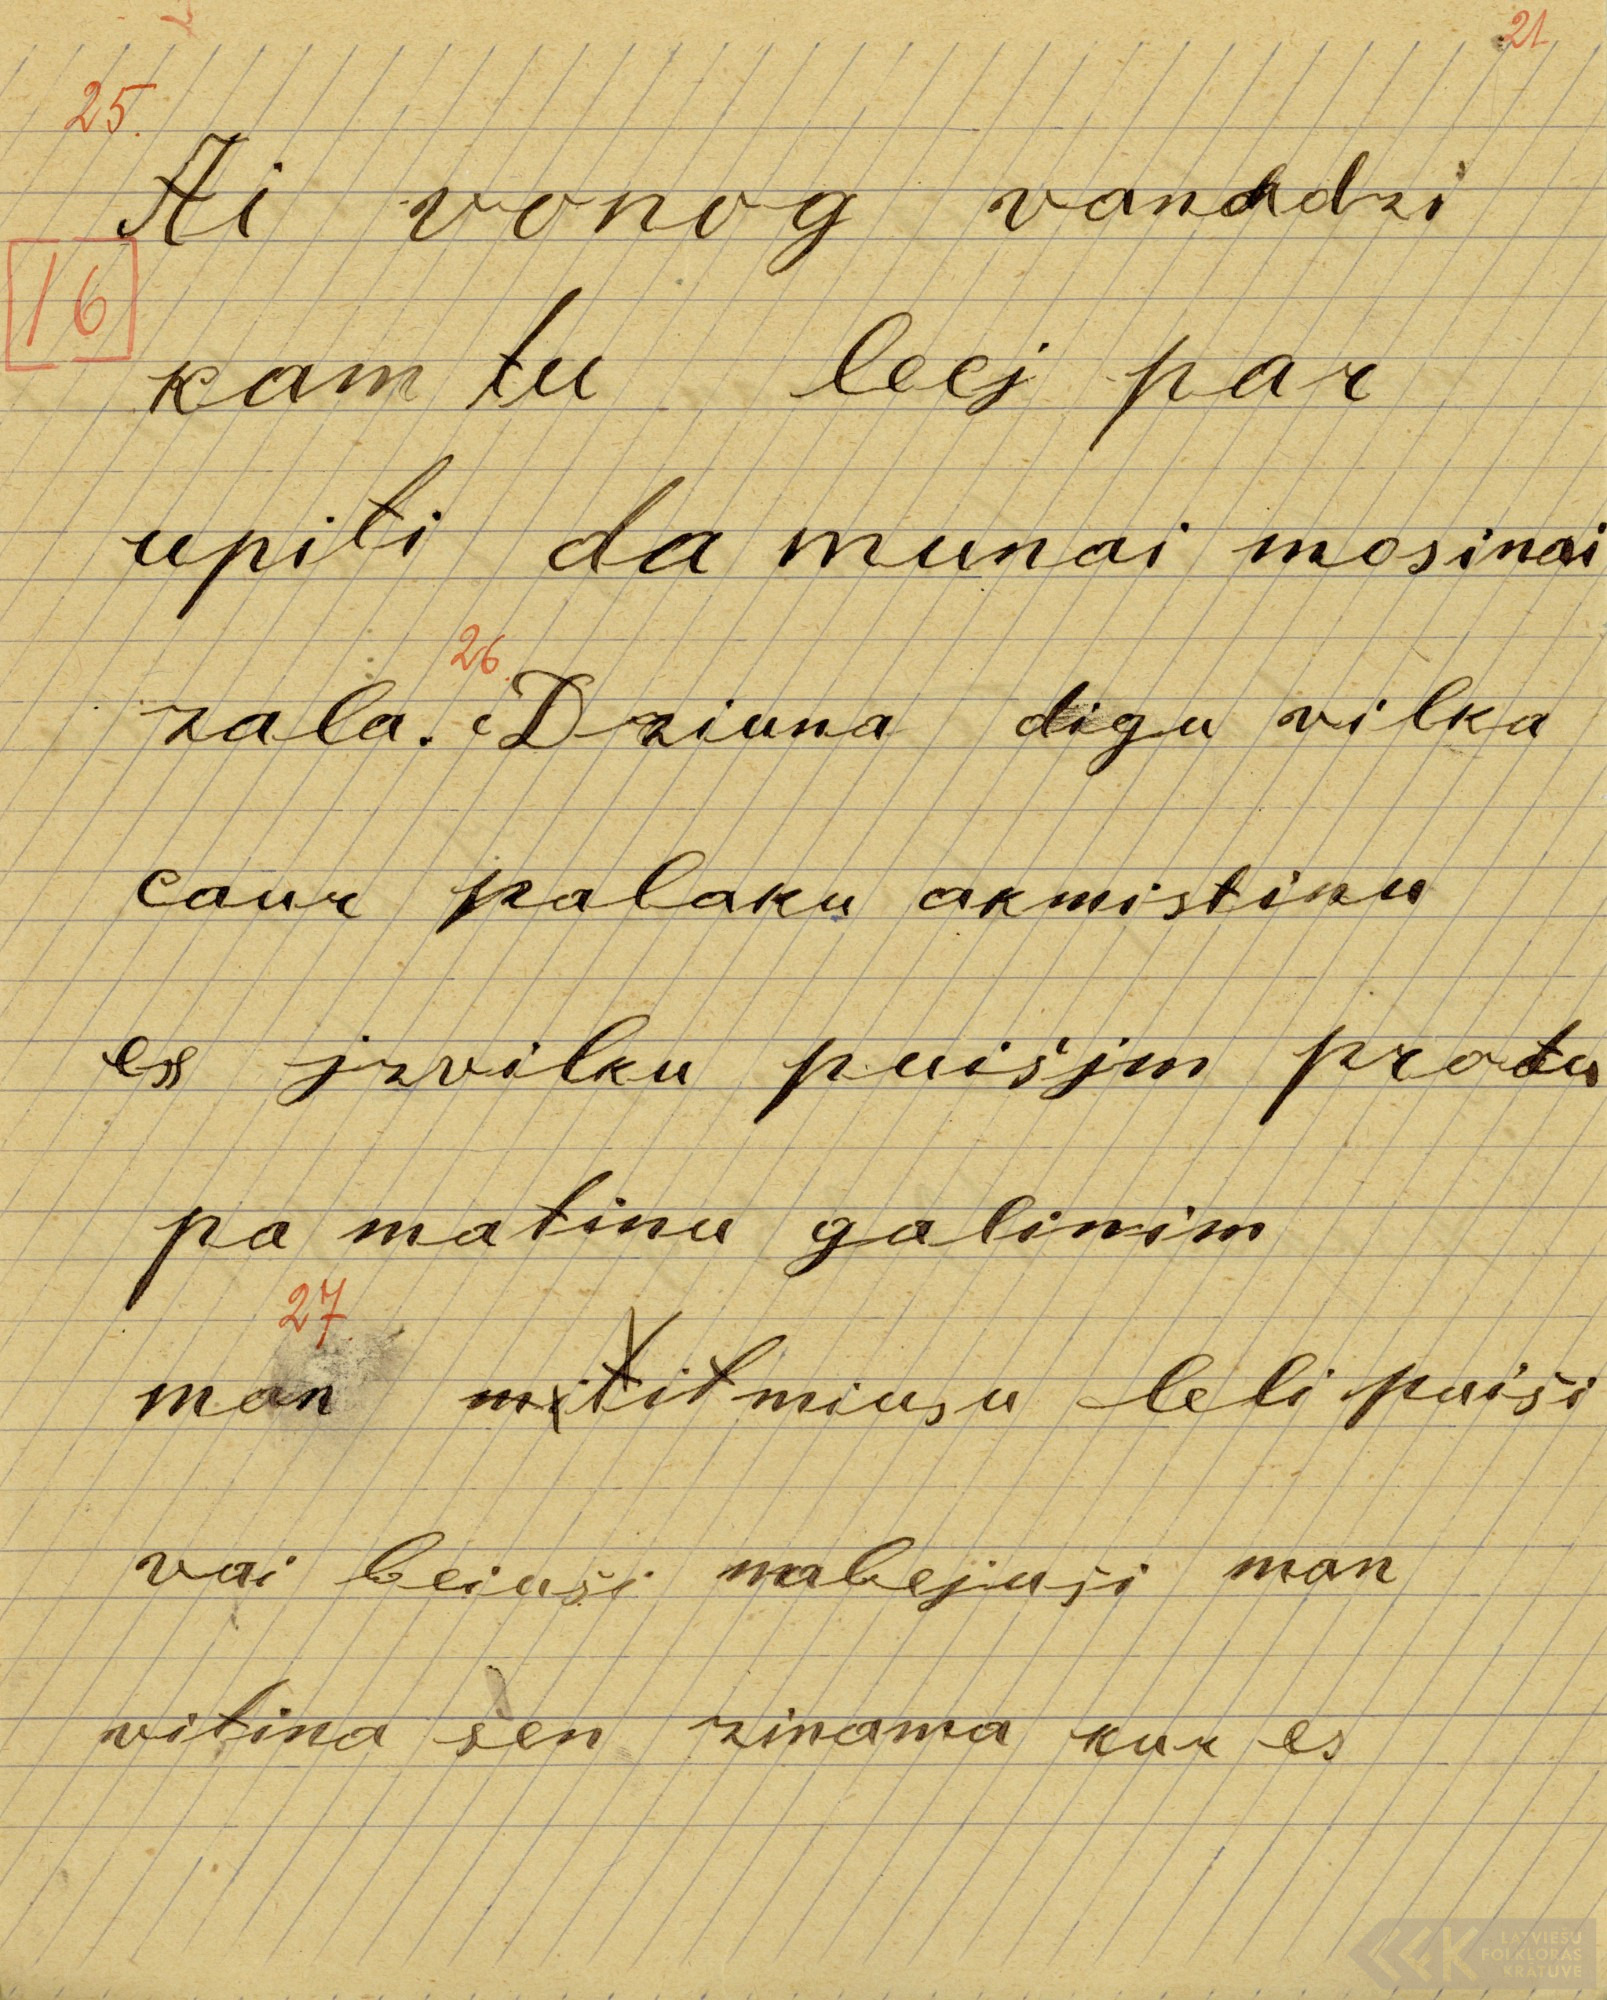 21
25.
Ai vonog vanadzi
16
kam tu leej par
upiti da munai mosinai
26.
zala. Dziuna digu vilka
caur palaku akmistinu
es jzvilku puišjm protu
pa matinu galinim
27.
man tit miusu leli puiši
vai beiuši nabejuši man
vitina sen zinama kur es
LATVIEŠU
FOLKLORAS
KRĀTUVE